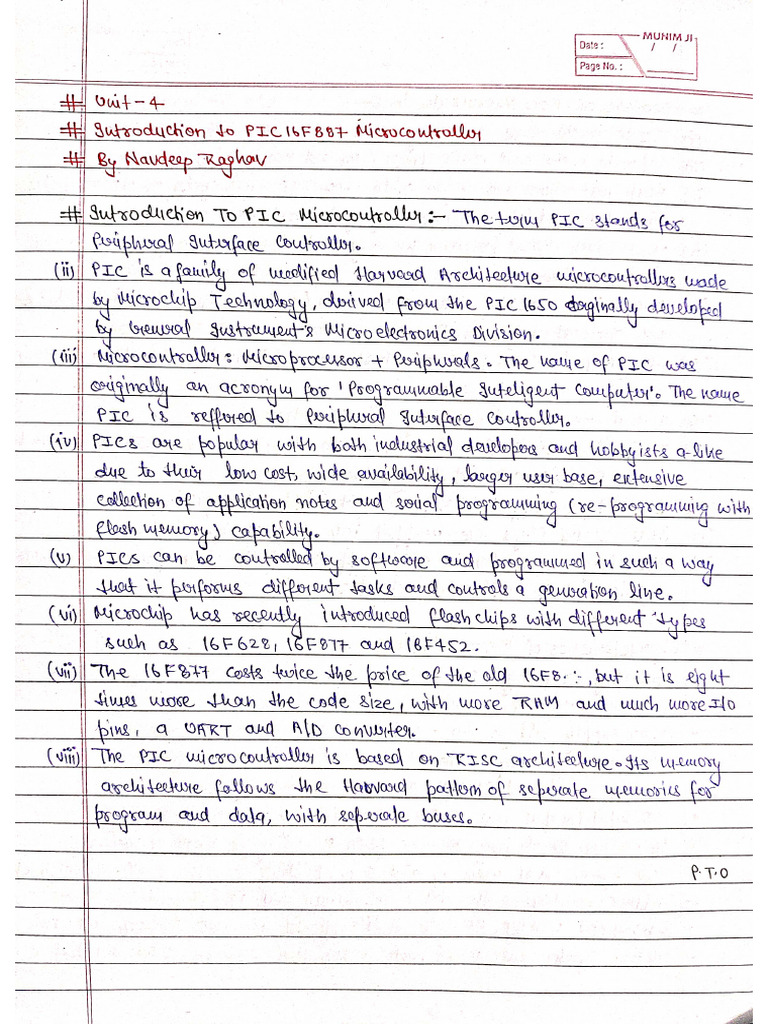 MUNIM JI
Date : / /
Page No. :
# Unit - 4
# Introduction to PIC16F887 Microcontroller
# By Navdeep Raghav
# Introduction To PIC Microcontroller :- The term PIC stands for
Peripheral Interface Controller.
(ii) PIC is a family of modified Harvard Architecture microcontrollers made
by Microchip Technology, derived from the PIC1650 originally developed
by General Instrument's Microelectronics Division.
(iii) Microcontroller : Microprocessor + Peripherals. The name of PIC was
originally an acronym for 'Programmable Inteligent Computer'. The name
PIC is reffered to Peripheral Interface Controller.
(iv) PICs are popular with both industrial developers and hobbyists a-like
due to their low cost, wide availability, larger user base, extensive
collection of application notes and social programming (re-programming with
flash memory) capability.
(v) PICs can be controlled by software and programmed in such a way
that it performs different tasks and controls a generation line.
(vi) Microchip has recently introduced flash chips with different types
such as 16F628, 16F877 and 18F452.
(vii) The 16F877 costs twice the price of the old 16F8. :-, but it is eight
times more than the code size, with more RAM and much more I/O
pins, a UART and A/D converter.
(viii) The PIC microcontroller is based on RISC architecture. Its memory
architecture follows the Harvard pattern of seperate memories for
program and data, with seperate buses.
P.T.O